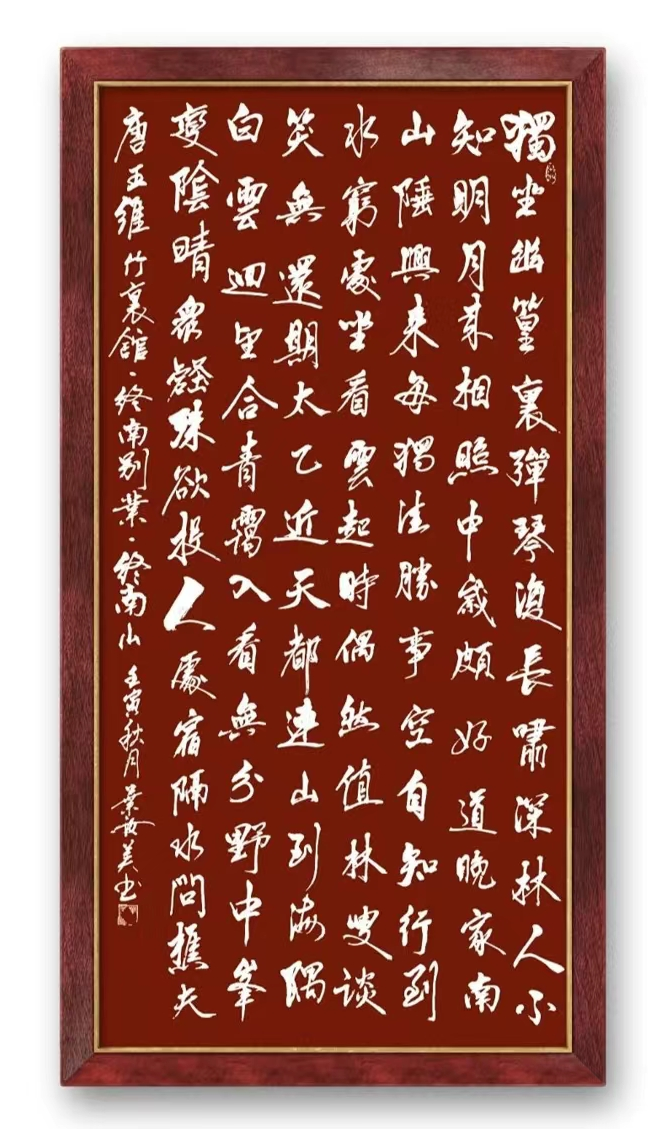 獨坐幽篁裏彈琴復長嘯深林人不
知明月來相照中歲頗好道晚家南
山陲興來每獨往勝事空自知行到
水窮處坐看雲起時偶然值林叟談
笑無還期太乙近天都連山到海隅
白雲迴望合青靄入看無分野中峯
變陰晴眾壑殊欲投人處宿隔水問樵夫
唐王維竹裏館·終南別業·終南山 壬寅秋月 美书